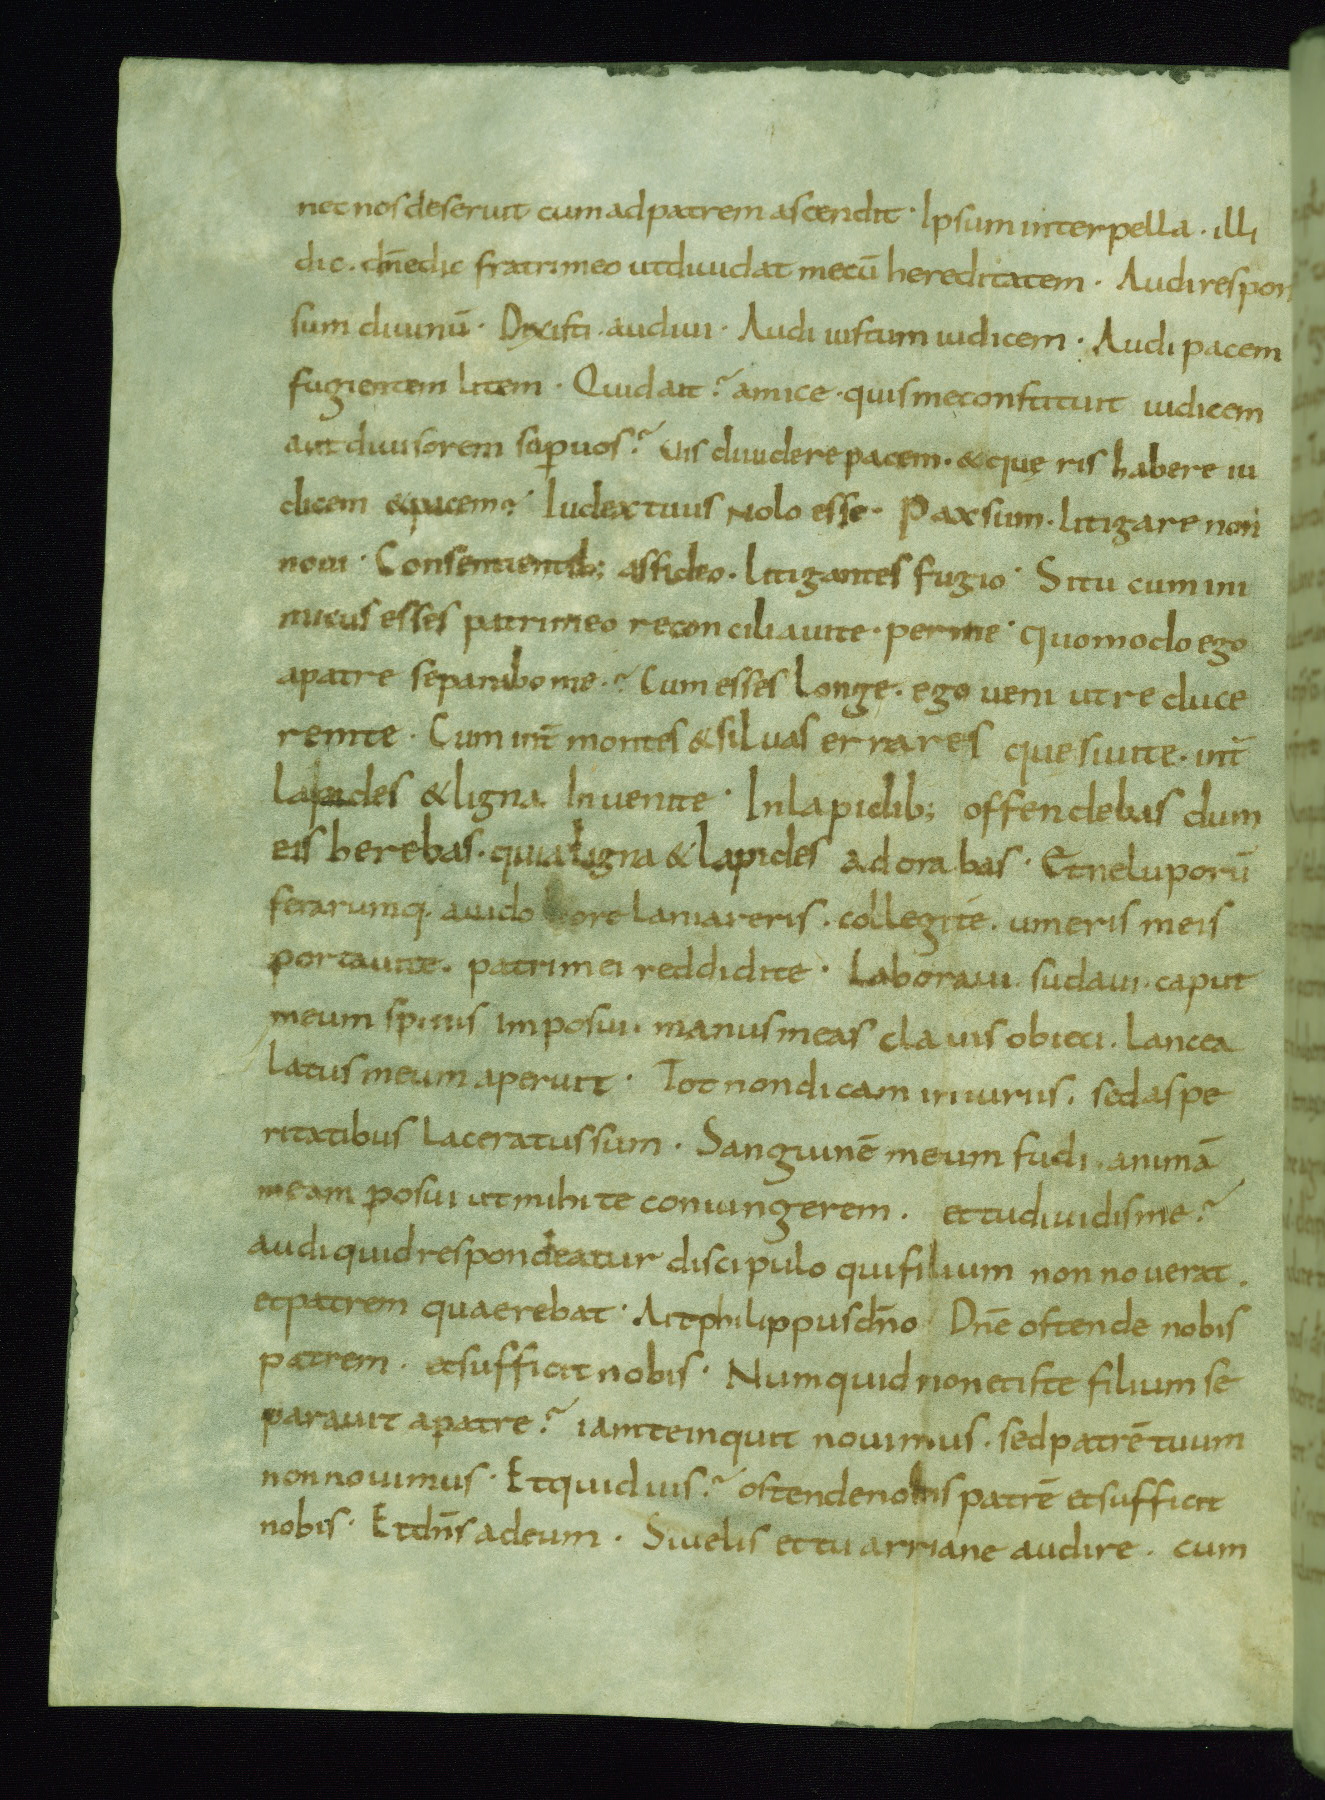 nec nos deseruit cum ad patrem ascendit · Ipsum interpella · illi
dic · dn̄e dic fratri meo ut diuidat mecū hereditatem · Audi respon
sum diuinū · Dixisti · audiui · Audi iustum iudicem · Audi pacem
fugientem litem · Quid ait ? amice · quis me constituit iudicem
aut diuisorem sup uos ? Uis diuidere pacem · & que ris habere iu
dicem & pacem ? Iudex tuus Nolo esse · Pax sum · litigare non
noui · Consentientib; assideo · litigantes fugio · Si tu cum ini
micus esses patri meo reconciliaui te · per me · quomodo ego
a patre separabo me · ? Cum esses longe · ego ueni ut reduce
rem te · Cum int̄ montes & siluas errares quesiui te · int̄
lapides & ligna Inueni te · In lapidib; offendebas dum
eis herebas · quia ligna & lapides adorabas · Et ne luporū
ferarumq. auido ore laniareris · collegi te · umeris meis
portaui te · patri mei reddidi te · Laboraui · sudaui · caput
meum spinis Imposui · manus meas clauis obieci · Lancea
latus meum aperuit · Tot non dicam iniuriis · sed aspe
ritatibus laceratus sum · Sanguinē meum fudi · animā
meam posui ut mihi te coniungerem · et tu diuidis me ?
audi quid respondeatur discipulo qui filium non nouerat ·
et patrem quaerebat · Ait philippus dn̄o Dn̄e ostende nobis
patrem · et sufficit nobis · Numquid non et iste filium se
parauit a patre ? iam te inquit nouimus · sed patrē tuum
non nouimus · Et quid uis ? ostende nobis patrē et sufficit
nobis · Et dn̄s ad eum · Si uelis et tu arriane audire · cum